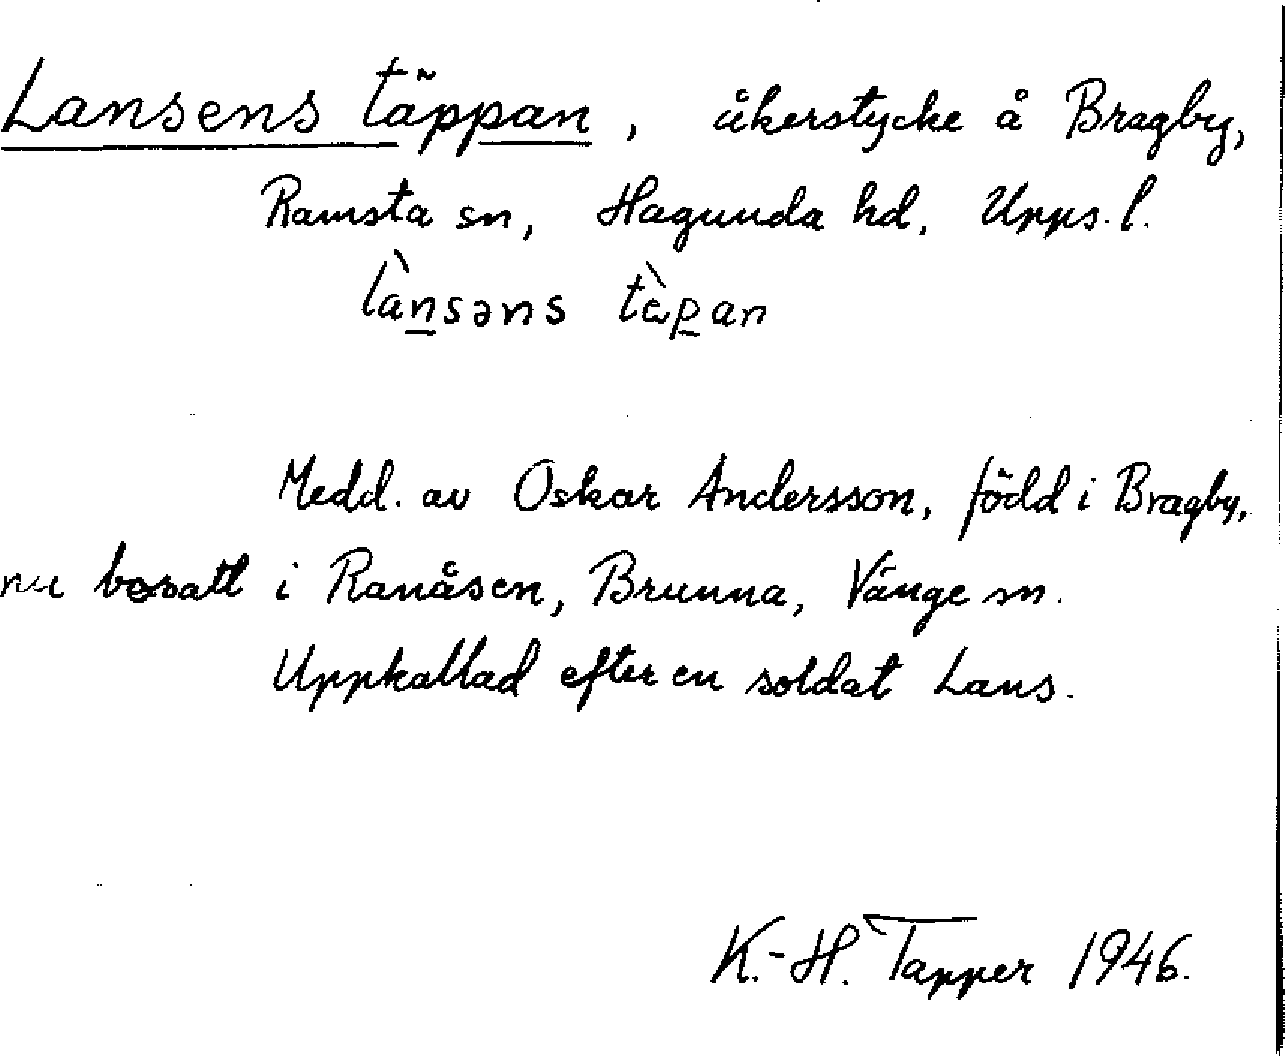 Lansens täppan, åkerstycke å Bragby,
Ramsta sn, Hagunda hd, Upps. l.
lànsəns tæ̀pan
Medd. av Oskar Andersson, född i Bragby,
nu bosatt i Ranåsen, Brunna, Vänge sn.
Uppkallad efter en soldat Lans.
K.-H. Tapper 1946.